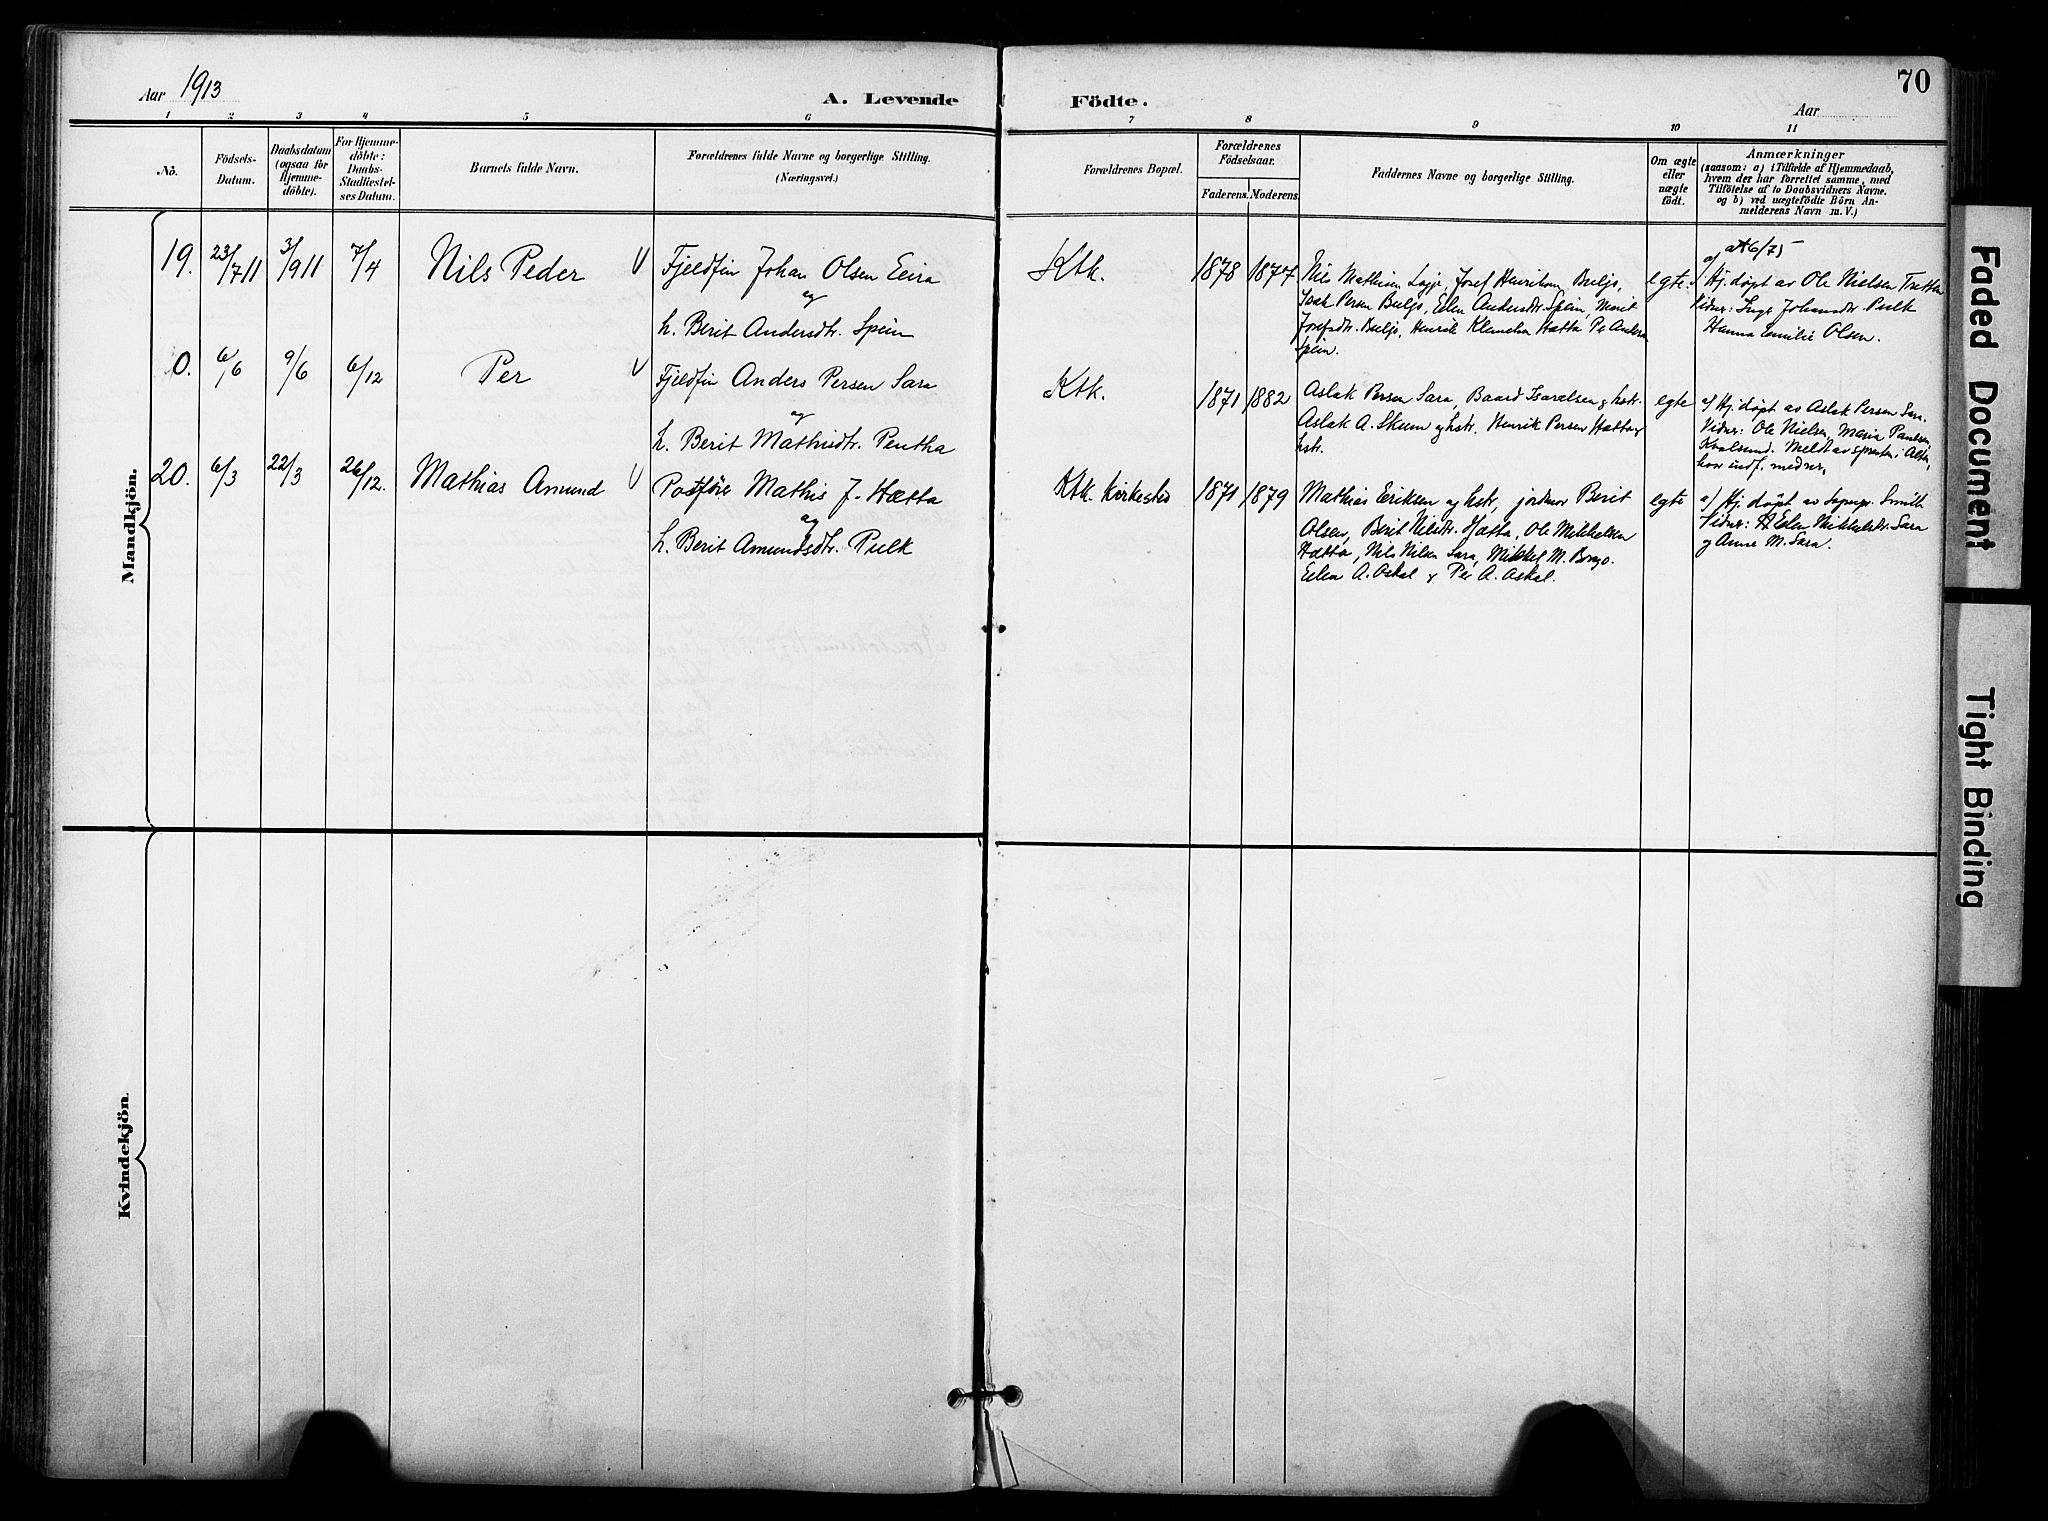 Aar 1913
A. Levende
Födte.
Aar
70
1 2 3 4 5 6 7 8 9 10 11
No.
Födsels-
Datum.
Daabsdatum
(ogsaa for
Hjemme-
döbte).
For Hjemme-
döbte:
Daabs-
Stadfæstel-
ses Datum.
Barnets fulde Navn.
Forældrenes fulde Navne og borgerlige Stilling.
(Næringsvei.)
Forældrenes Bopæl.
Forældrenes
Födselsaar.
Faderens. Moderens.
Faddernes Navne og borgerlige Stilling.
Om ægte
eller
uægte
født.
Anmærkninger
(saasom: a) i Tilfælde af Hjemmedaab,
hvem der har forrettet samme, med
Tilföielse af to Daabsvidners Navne.
og b) ved uægtefödte Börn An-
melderens Navn m. V.)
Mandkjön.
19. 23/7 11 3/9 11 7/4 Nils Peder V
Fjeldfin Johan Olsen Eira
og
h. Berit Andersdtr. Spein
Ktk. 1878 1877
Nils Mathisen Logje, Josef Henriksen Buljo,
Isak Persen Buljo, Elen Andersdtr. Spein, Marit
Josefsdtr. Buljo, Henrik Klemetsen Hætta Per Andersen
Spein.
egte.
att 6/75
a/ Hj. døpt av Ole Nielsen Tretten
Vidner: Inga Johansdtr. Pulk
Hanna Emilie Olsen.
0. 6/6 9/6 6/12 Per V
Fjeldfin Anders Persen Sara
og
h. Berit Mathisdtr. Pentha
Ktk. 1871 1882
Aslak Persen Sara, Baard Isaralsen g hstr.
Aslak A. Skum og hstr. Henrik Persen Hætta og
hstr.
egte
a/ Hj. døpt av Aslak Persen Sara.
Vidner: Ole Nielsen, Maria Paulsen,
Kvalsund. Meldt av spresten i Alta,
20. 6/3 22/3 26/12. Mathias Amund V
Postförer Mathis J. Hætta
og
h. Berit Amundsdtr. Pulk
Ktk. Kirkested 1871 1879
Mathias Eriksen og hstr, jordmor Berit
Olsen, Berit Nilsdtr. Hætta, Ole Mikkelsen
Hætta, Nils Nilsen Sara, Mikkel M. Bongo.
Elen A. Oskal & Per A. Oskal.
egte
a/ Hj. døpt av Sognepr. Smith
Vidner: Elen Mikkelsdtr. Sara
g Anne M. Sara.
Kvindekjön.
Faded Document
Tight Binding